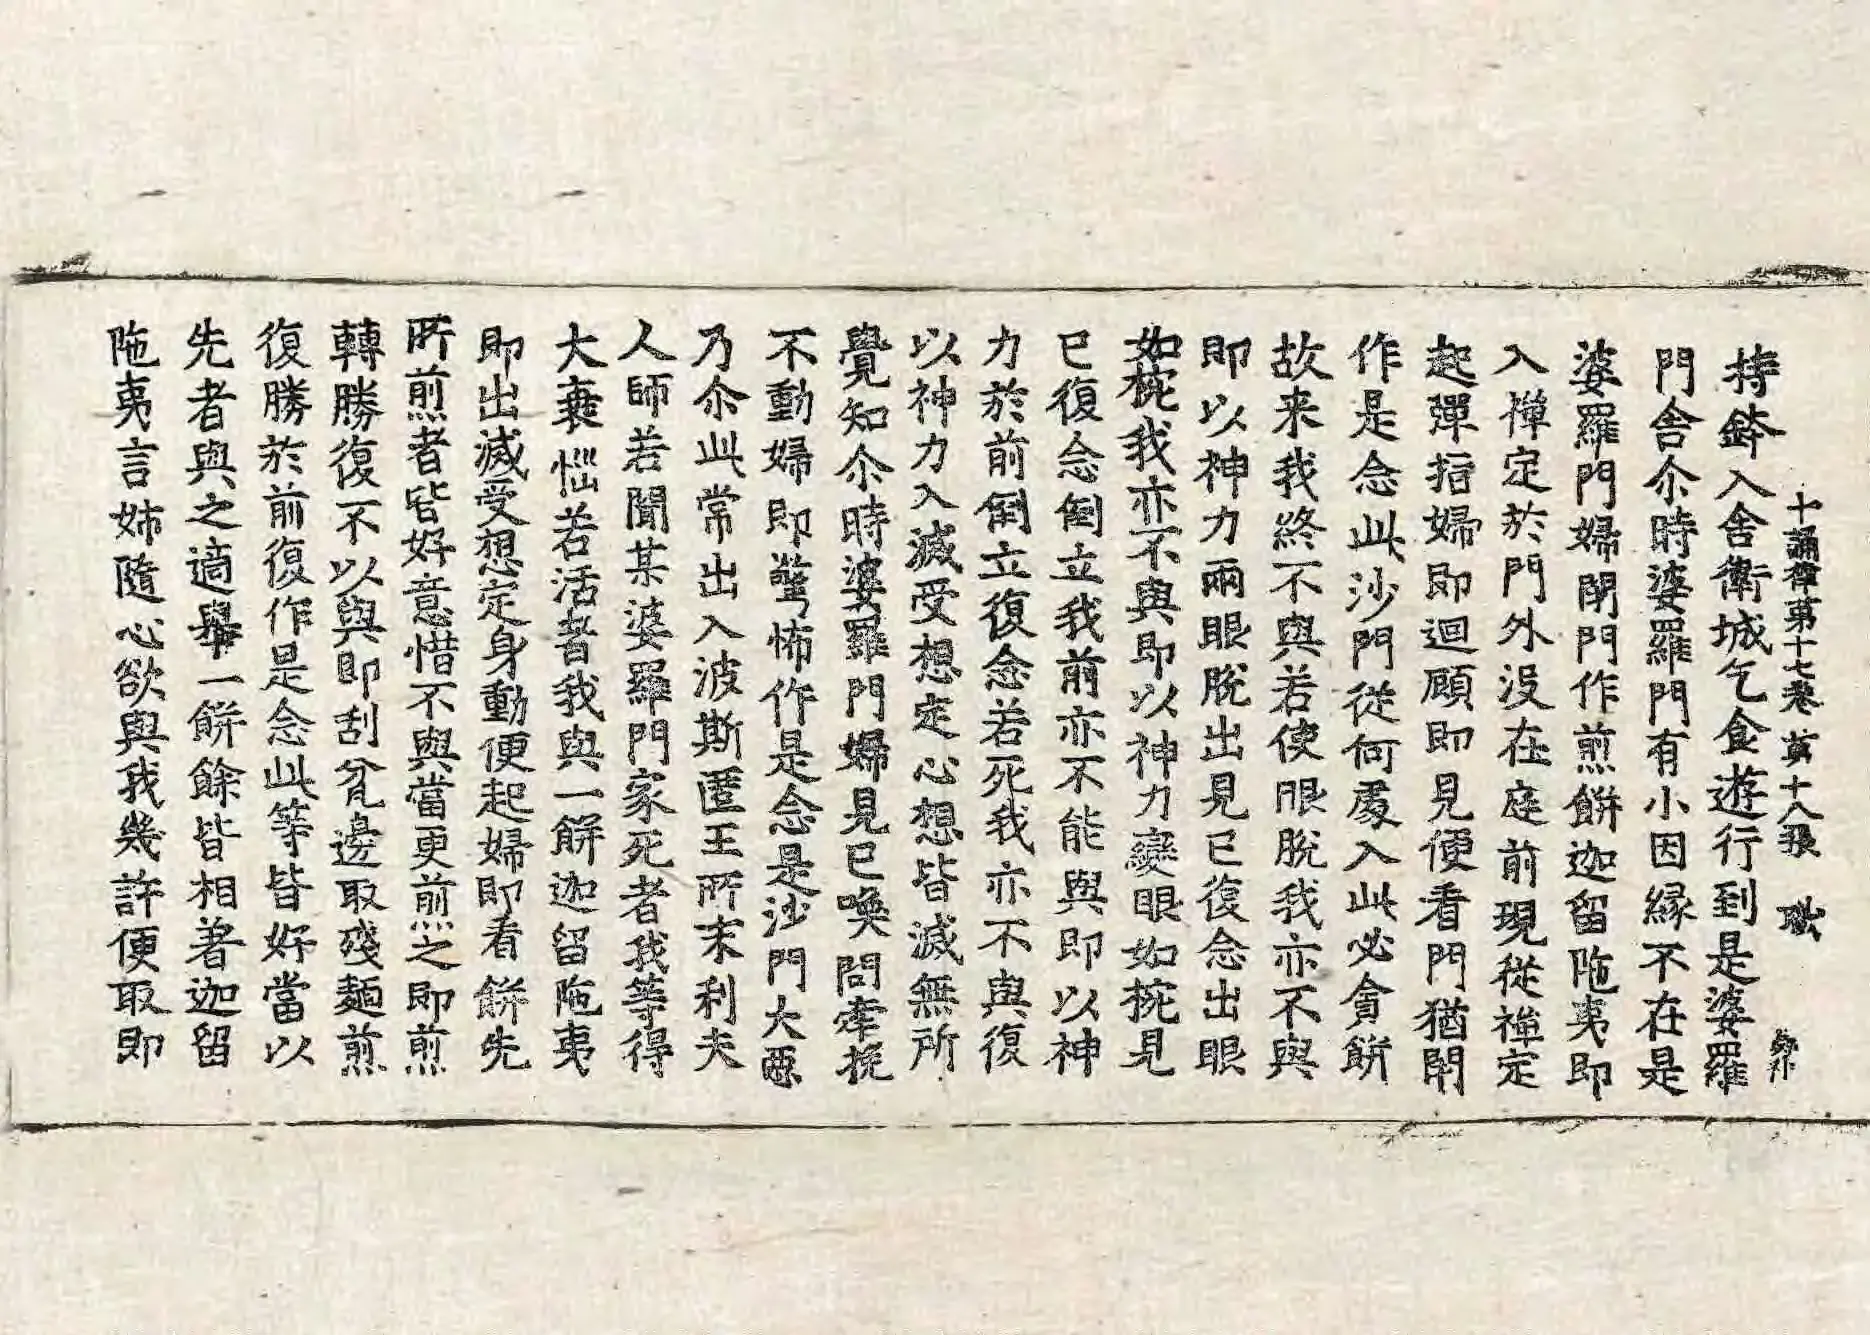 十誦律第十七卷 第十八張 職
持鉢入舍衛城乞食遊行到是婆羅
門舍尒時婆羅門有小因縁不在是
婆羅門婦閉門作煎餅迦留陁夷即
入禪定於門外没在庭前現從禪定
起彈指婦即迴顧即見便看門猶閉
作是念此沙門從何處入此必貪餅
故来我終不與若使眼脫我亦不與
即以神力兩眼脫出見已復念出眼
如椀我亦不與即以神力變眼如椀見
已復念倒立我前亦不能與即以神
力於前倒立復念若死我亦不與復
以神力入滅受想定心想皆滅無所
覺知尒時婆羅門婦見已喚問牽挽
不動婦即驚怖作是念是沙門大惡
乃尒此常出入波斯匿王所末利夫
人師若聞某婆羅門家死者我等得
大衰惱若活者我與一餅迦留陁夷
即出滅受想定身動便起婦即看餅先
所煎者皆好意惜不與當更煎之即煎
轉勝復不以與即刮瓫邊取殘麵煎
復勝於前復作是念此等皆好當以
先者與之適舉一餅餘皆相著迦留
陁夷言姊隨心欲與我幾許便取即